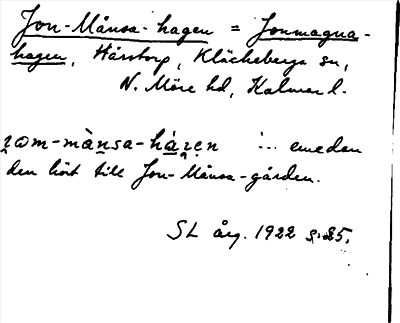 Jon-Månsa-hagen = Jonmagna-
hagen, Hårstorp, Kläckeberga sn,
N. Möre hd, Kalmar l.
... emedan
den hört till Jon-Månsa-gården.
SL årg. 1922 s. 25.